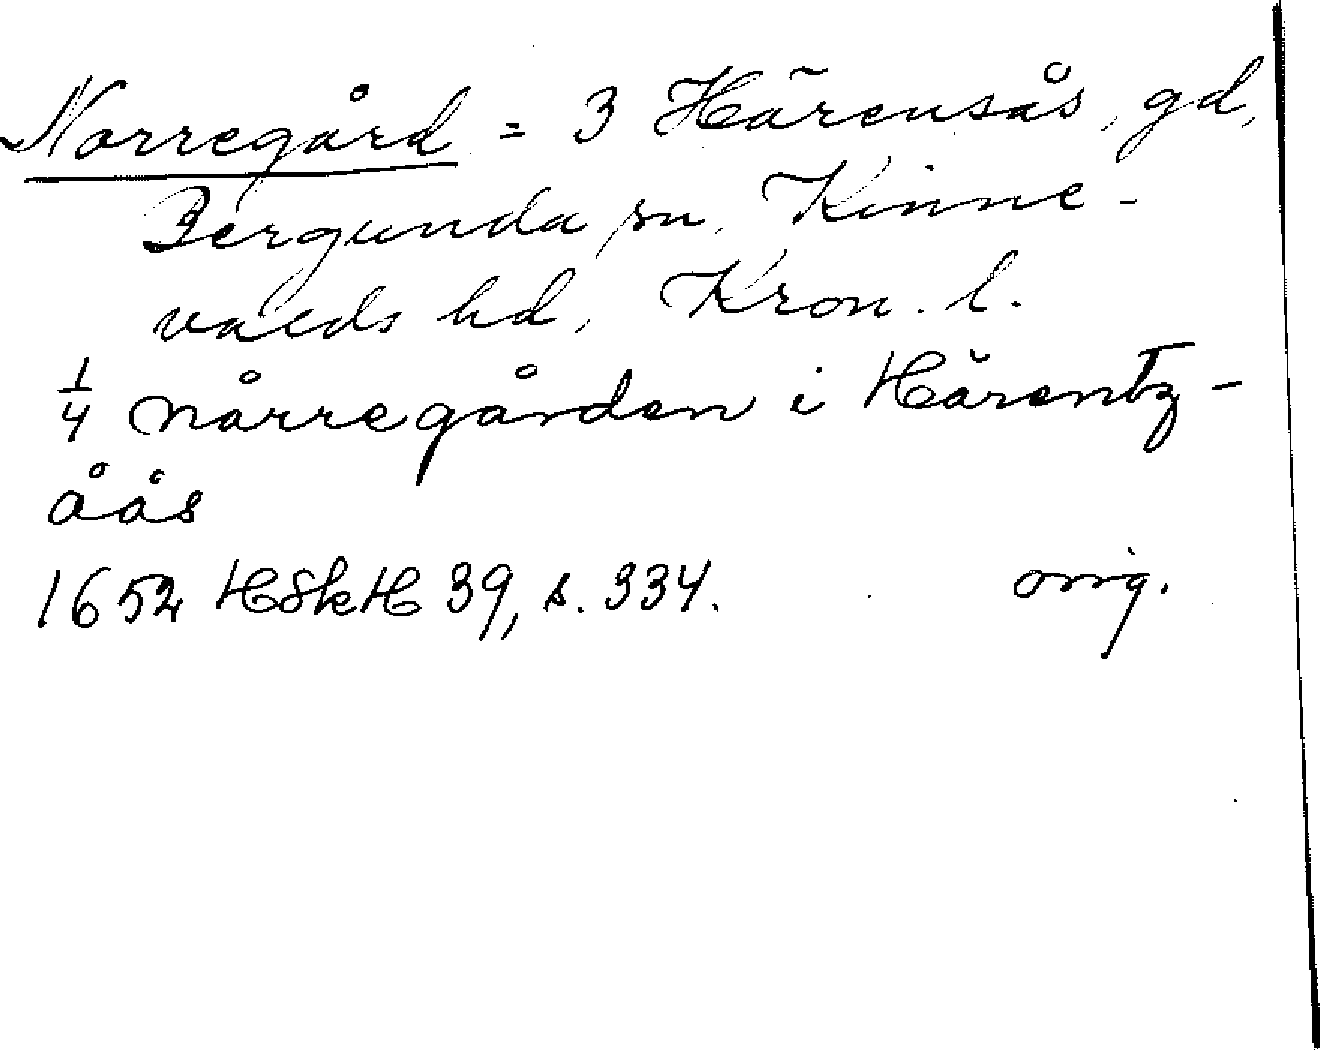 Norregård = 3 Härensås, gd,
Bergunda sn, Kinne-
valds hd, Kron. l.
1/4 Nårregården i Härentz-
åås
1652 HSkH 39, s. 334.
orig.